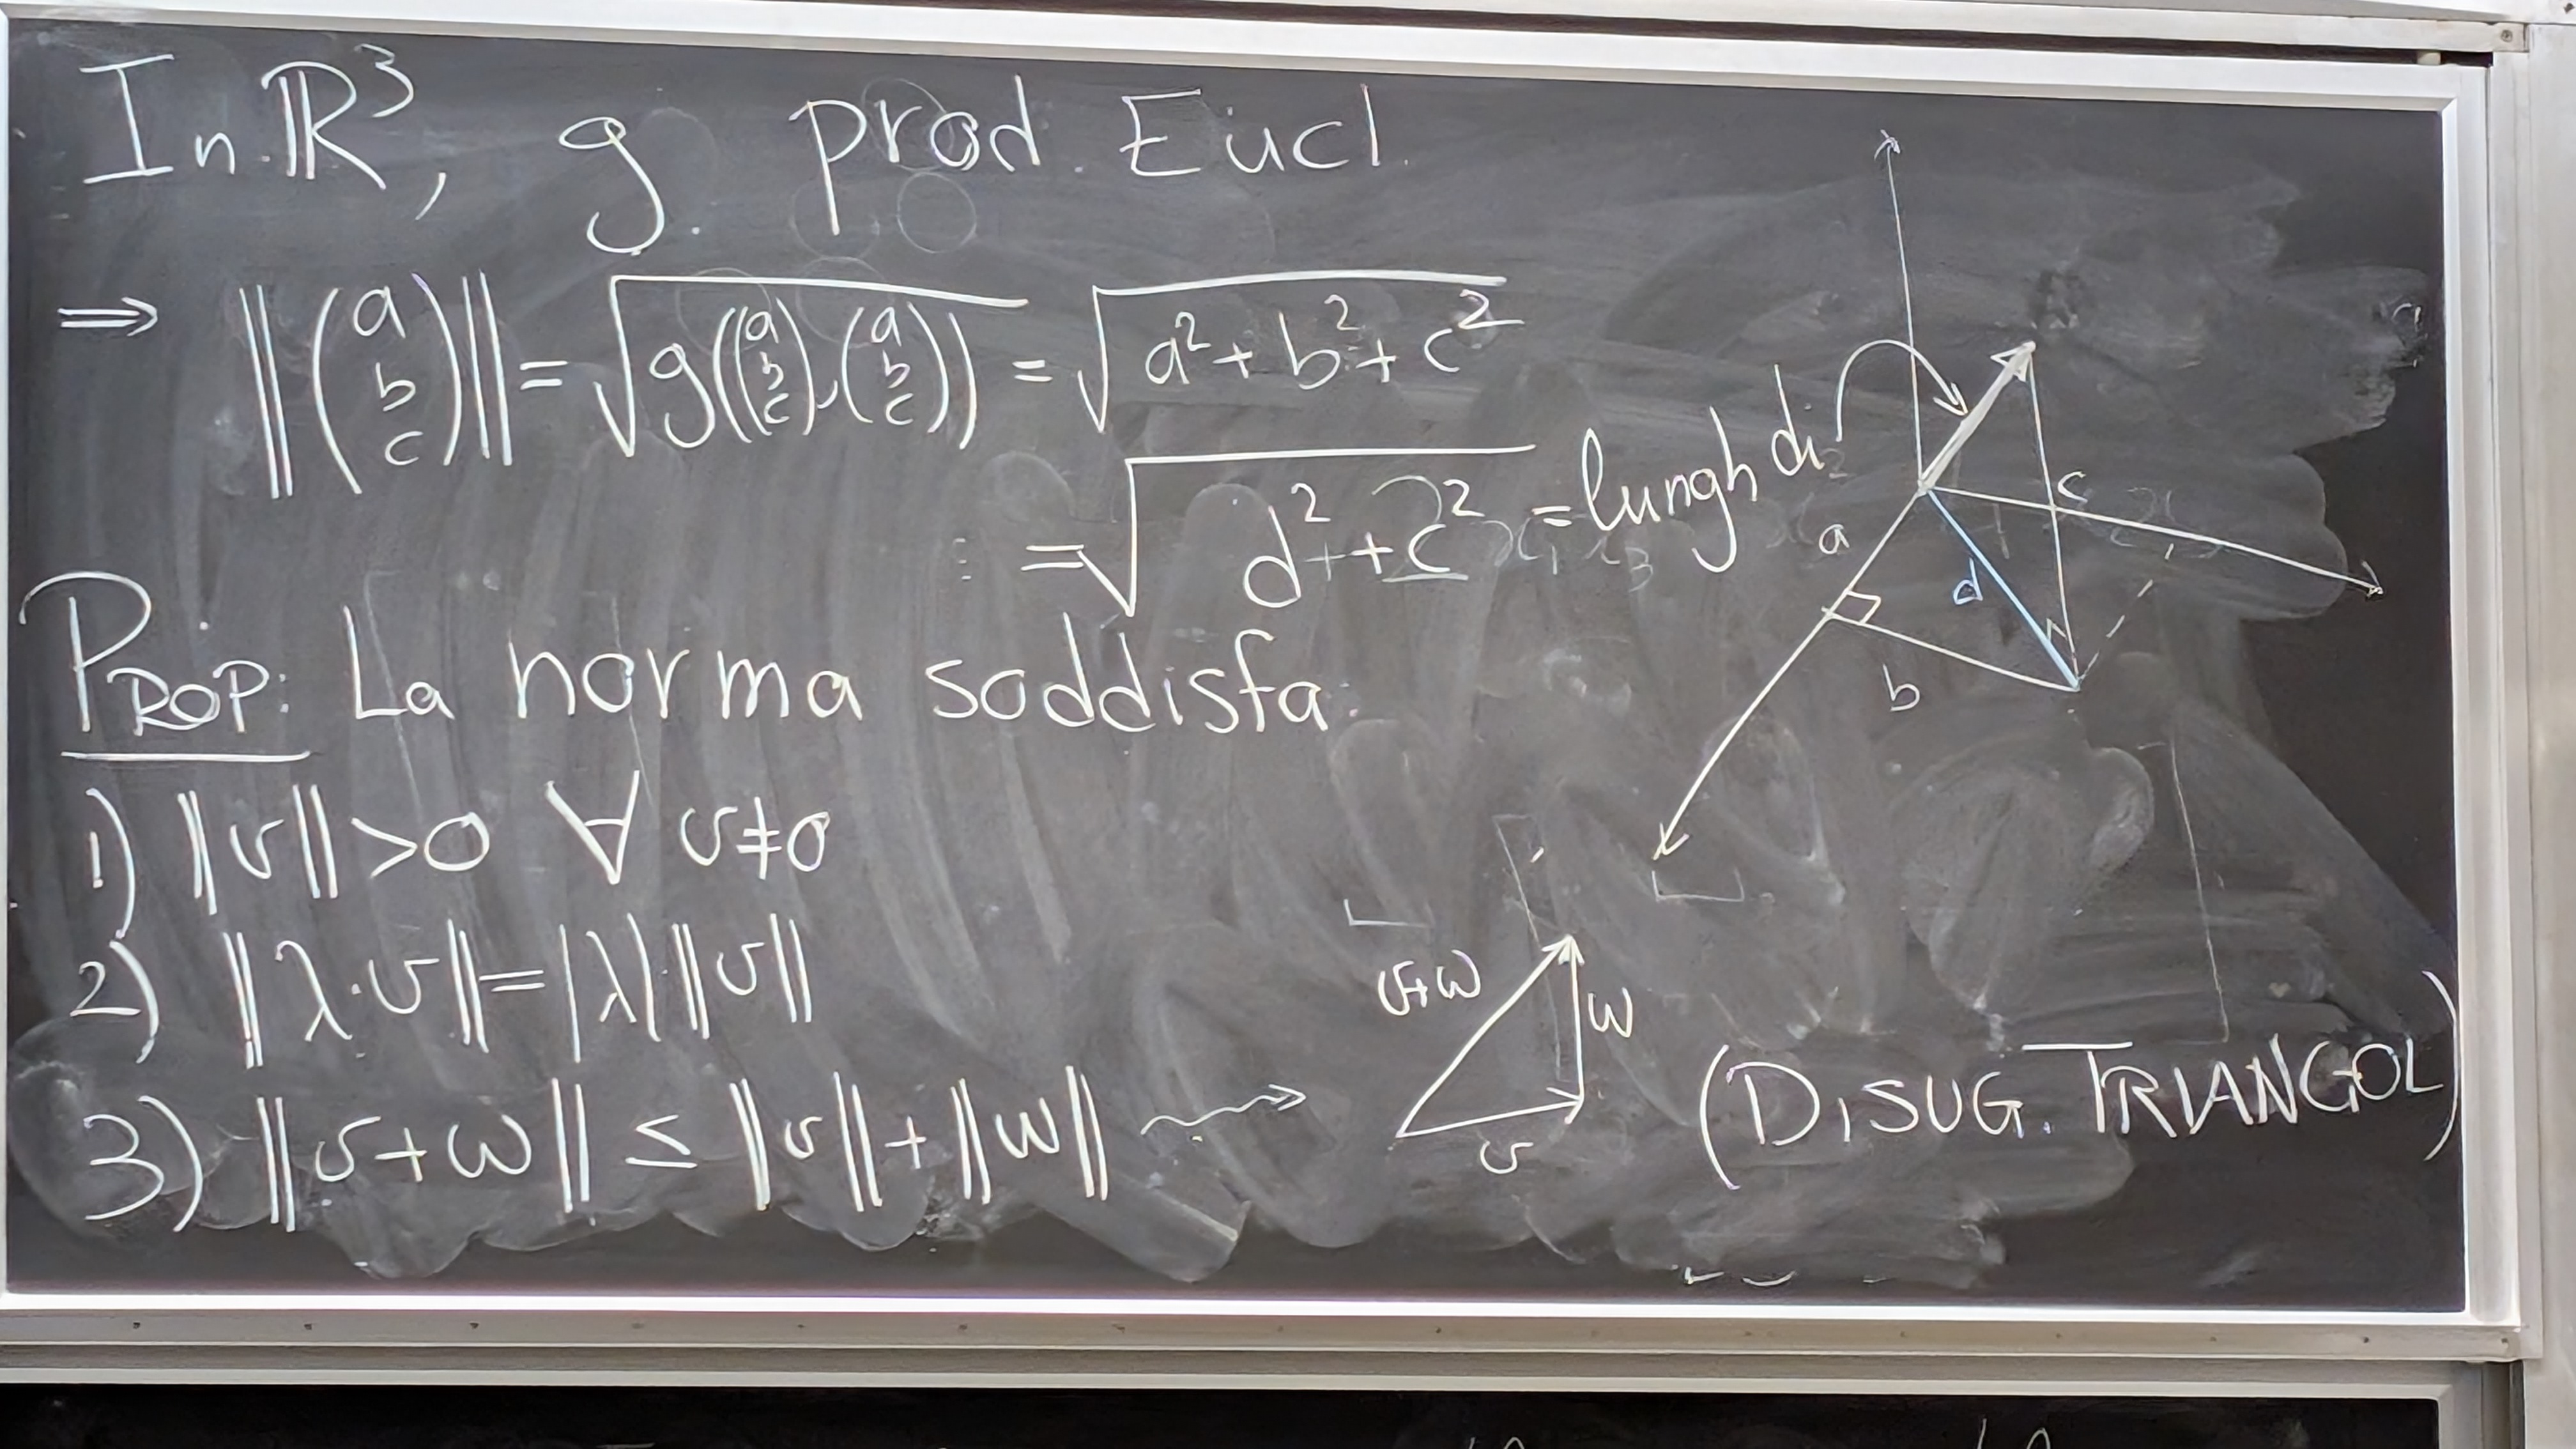 In ℝ³, g prod. Eucl.
⇒ ‖(a b c)‖ = √g((a b c), (a b c)) = √a² + b² + c²
= √d² + c² = lungh di
a
b
c
d
PROP: La norma soddisfa:
1) ‖v‖ > 0 ∀ v ≠ 0
2) ‖λ·v‖ = |λ|·‖v‖
3) ‖v + w‖ ≤ ‖v‖ + ‖w‖ ⇝ (DISUG. TRIANGOL)
v+w
w
v